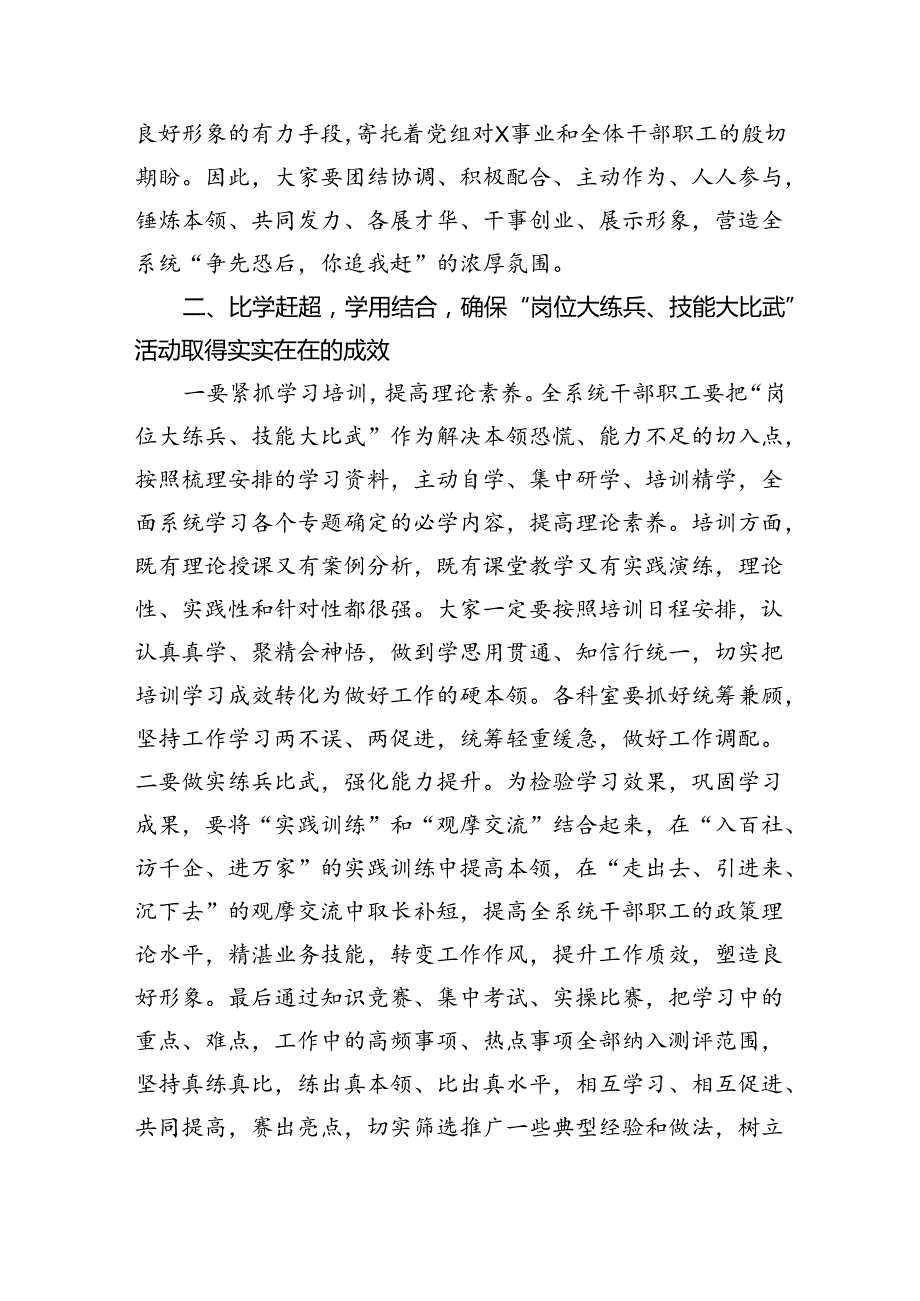 良好形象的有力手段，寄托着党组对X事业和全体干部职工的殷切
期盼。因此，大家要团结协调、积极配合、主动作为、人人参与，
锤炼本领、共同发力、各展才华、干事创业、展示形象，营造全
系统“争先恐后，你追我赶”的浓厚氛围。
二、比学赶超，学用结合，确保“岗位大练兵、技能大比武”
活动取得实实在在的成效
一要紧抓学习培训，提高理论素养。全系统干部职工要把“岗
位大练兵、技能大比武”作为解决本领恐慌、能力不足的切入点，
按照梳理安排的学习资料，主动自学、集中研学、培训精学，全
面系统学习各个专题确定的必学内容，提高理论素养。培训方面，
既有理论授课又有案例分析，既有课堂教学又有实践演练，理论
性、实践性和针对性都很强。大家一定要按照培训日程安排，认
认真真学、聚精会神悟，做到学思用贯通、知信行统一，切实把
培训学习成效转化为做好工作的硬本领。各科室要抓好统筹兼顾，
坚持工作学习两不误、两促进，统筹轻重缓急，做好工作调配。
二要做实练兵比武，强化能力提升。为检验学习效果，巩固学习
成果，要将“实践训练”和“观摩交流”结合起来，在“入百社、
访千企、进万家”的实践训练中提高本领，在“走出去、引进来、
沉下去”的观摩交流中取长补短，提高全系统干部职工的政策理
论水平，精湛业务技能，转变工作作风，提升工作质效，塑造良
好形象。最后通过知识竞赛、集中考试、实操比赛，把学习中的
重点、难点，工作中的高频事项、热点事项全部纳入测评范围，
坚持真练真比，练出真本领、比出真水平，相互学习、相互促进、
共同提高，赛出亮点，切实筛选推广一些典型经验和做法，树立